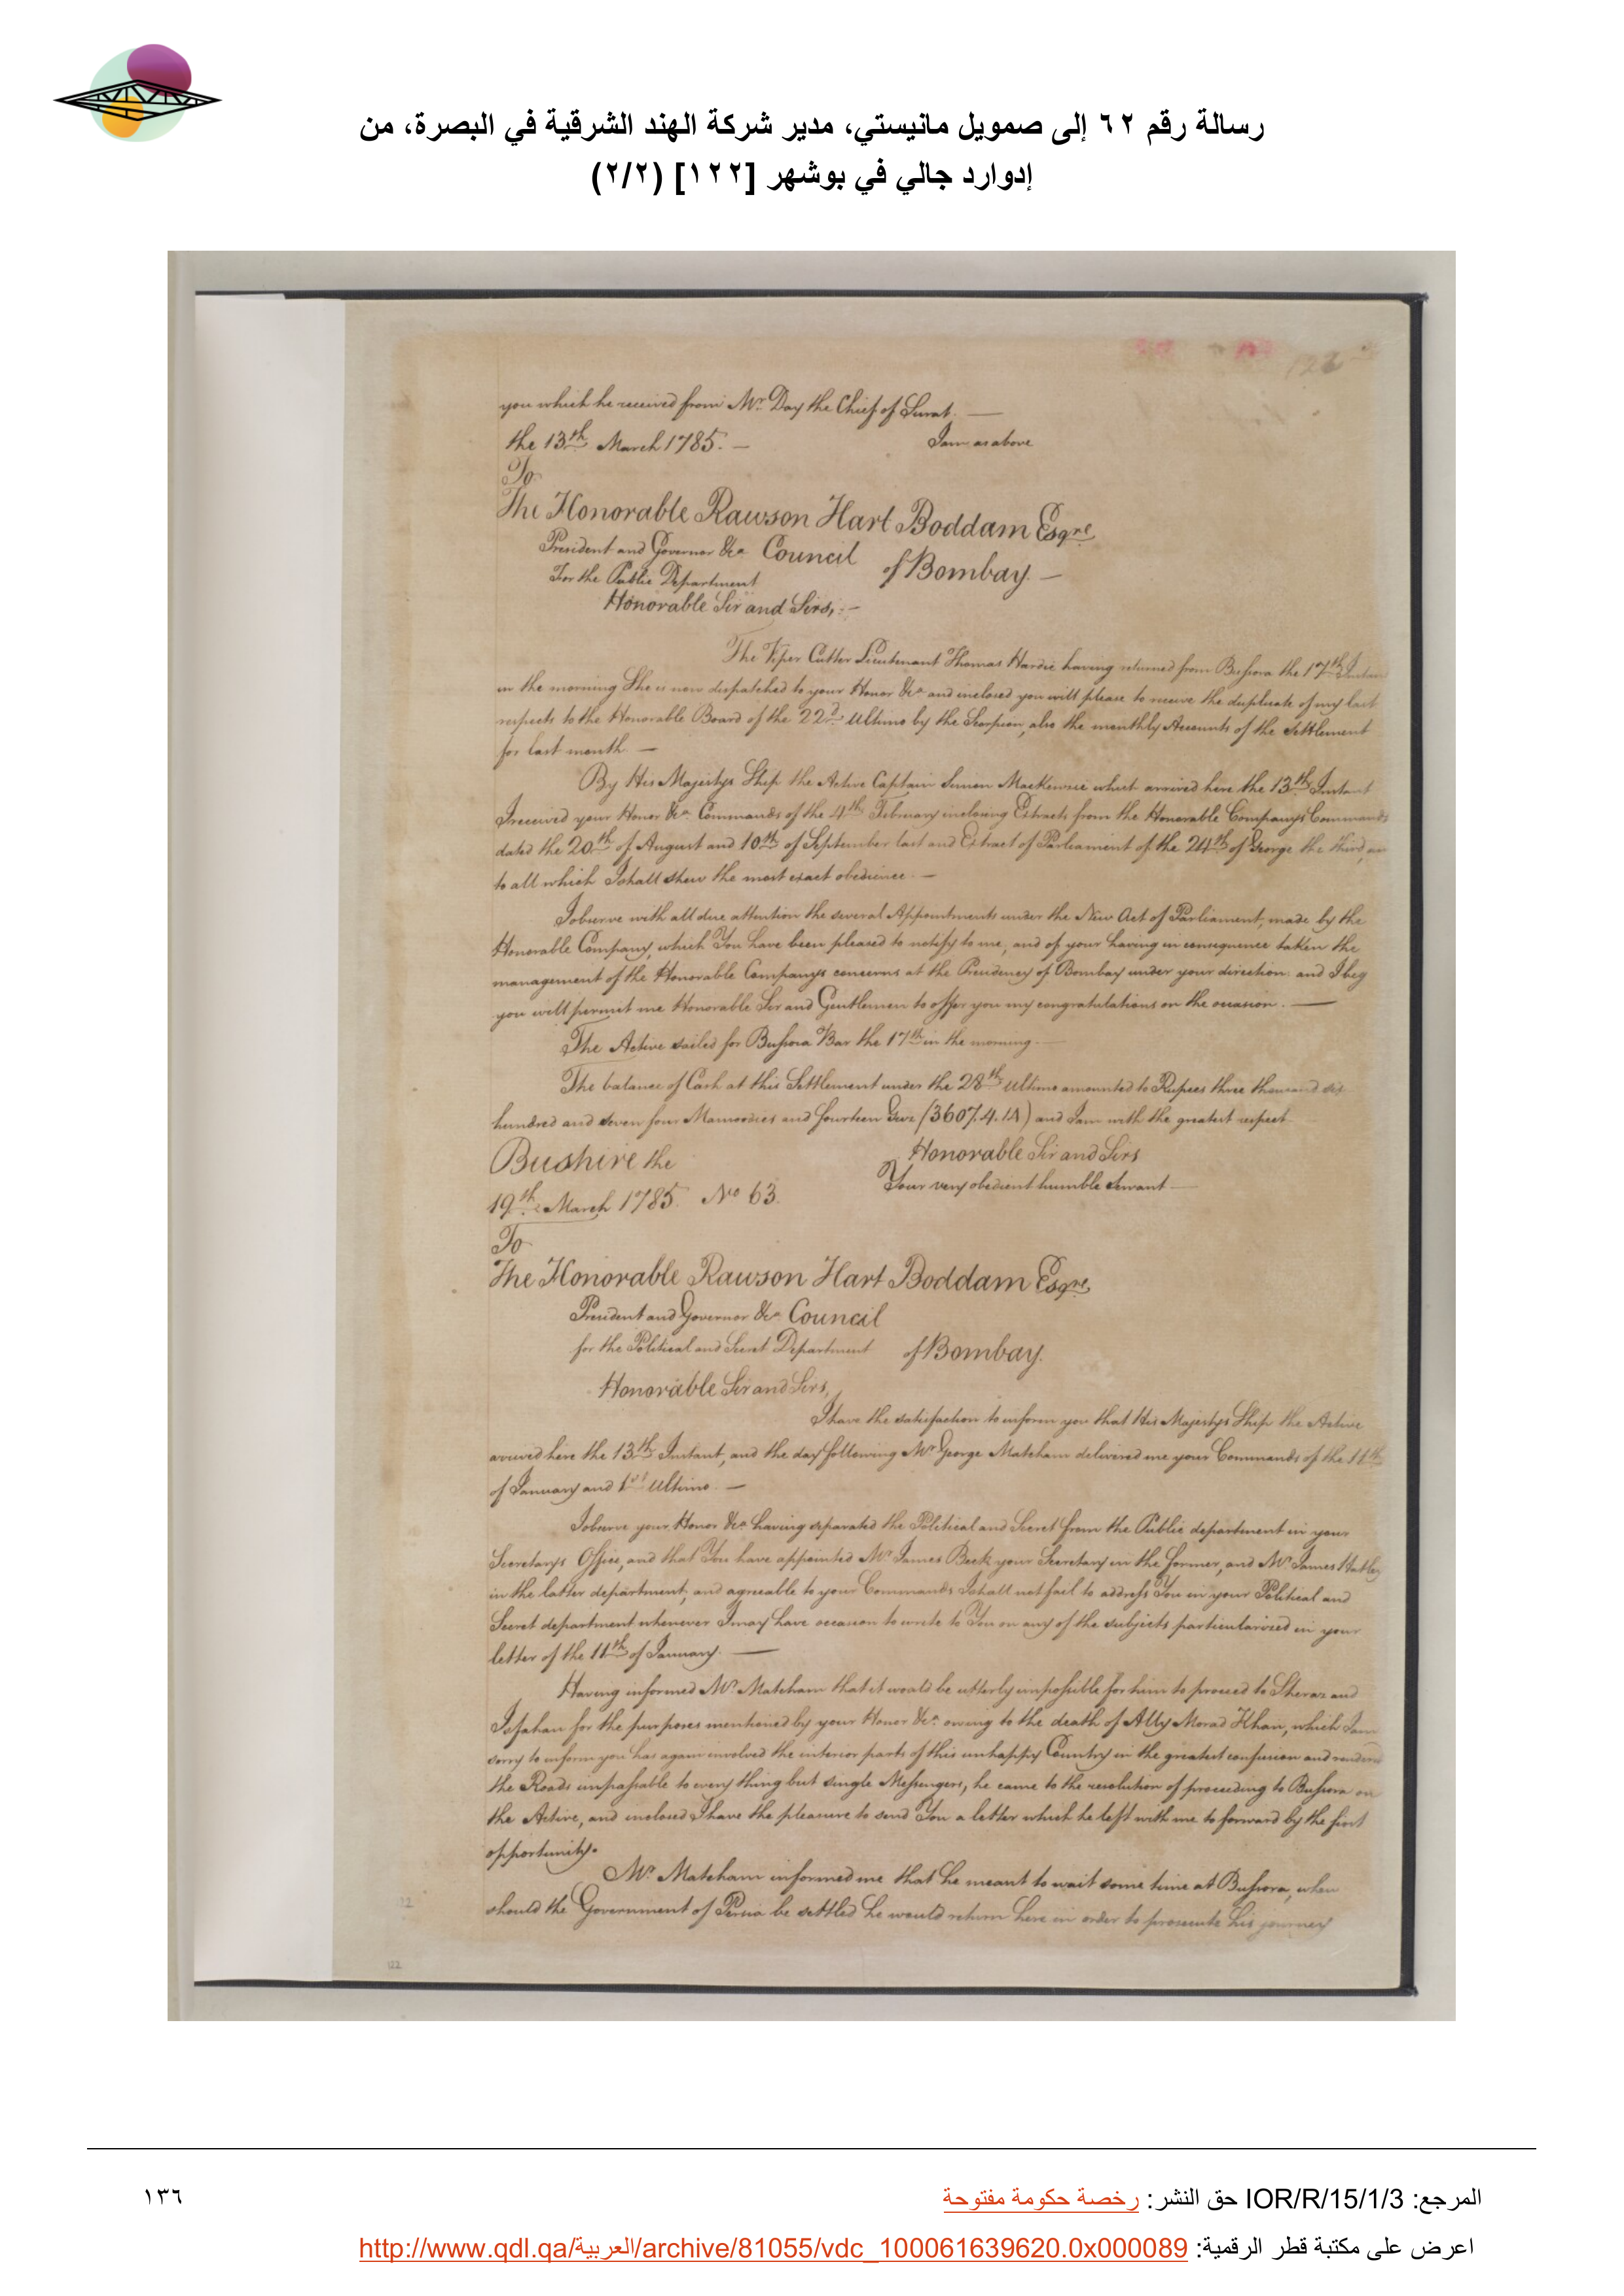 رسالة رقم ٦٢ إلى صمويل مانيستي، مدير شركة الهند الشرقية في البصرة، من
إدوارد جالي في بوشهر [١٢٢] (٢/٢)
you which he received from Mr. Day the Chief of Surat. —
the 13th March 1785. — I am as above
To
The Honorable Rawson Hart Boddam Esqre
President and Governor &ca Council of Bombay. —
For the Public Department
Honorable Sir and Sirs, —
The Viper Cutter Lieutenant Thomas Hardie having returned from Bussora the 17th Instant
in the morning She is now dispatched to your Honor &ca and inclosed you will please to receive the duplicate of my last
respects to the Honorable Board of the 22d Ultimo by the Scorpion, also the monthly Accounts of the Settlement
for last month —
By His Majestys Ship the Active Captain Simon Mackenzie which arrived here the 13th Instant
I received your Honor &ca Commands of the 4th February inclosing Extracts from the Honorable Companys Commands
dated the 20th of August and 10th of September last and Extract of Parliament of the 24th of George the third,
to all which I shall shew the most exact obedience. —
I observe with all due attention the several Appointments under the New Act of Parliament, made by the
Honorable Company, which You have been pleased to notify to me, and of your having in consequence taken the
management of the Honorable Companys concerns at the Presidency of Bombay under your direction and I beg
you will permit me Honorable Sir and Gentlemen to offer you my congratulations on the occasion. —
The Active sailed for Bussora Bar the 17th in the morning. —
The balance of Cash at this Settlement under the 28th Ultimo amounted to Rupees three thousand six
hundred and seven four Mamoodies and fourteen (3607.4.14) and I am with the greatest respect
Bushire the Honorable Sir and Sirs
19th March 1785 No 63. Your very obedient humble Servant —
To
The Honorable Rawson Hart Boddam Esqre
President and Governor &ca Council
for the Political and Secret Department of Bombay.
Honorable Sir and Sirs,
I have the satisfaction to inform you that His Majestys Ship the Active
arrived here the 13th Instant, and the day following Mr George Matcham delivered me your Commands of the 11th
of January and 1st Ultimo. —
I observe your Honor &ca having separated the Political and Secret from the Public department in your
Secretarys Office, and that You have appointed Mr James Beck your Secretary in the former, and Mr James Hatley
in the latter department, and agreeable to your Commands I shall not fail to address You in your Political and
Secret department whenever I may have occasion to write to You on any of the subjects particularized in your
letter of the 11th of January. —
Having informed Mr. Matcham that it would be utterly impossible for him to proceed to Sheraz and
Isfahan for the purposes mentioned by your Honor &ca owing to the death of Ally Morad Khan, which I am
sorry to inform you has again involved the interior parts of this unhappy Country in the greatest confusion and renders
the Roads impassable to every thing but single Messengers, he came to the resolution of proceeding to Bussora on
the Active, and inclosed I have the pleasure to send You a letter which he left with me to forward by the first
opportunity.
Mr Matcham informed me that he meant to wait some time at Bussora, when
should the Government of Persia be settled he would return here in order to prosecute his journey
122
المرجع: IOR/R/15/1/3 حق النشر: رخصة حكومة مفتوحة
١٣٦
اعرض على مكتبة قطر الرقمية: http://www.qdl.qa/العربية/archive/81055/vdc_100061639620.0x000089